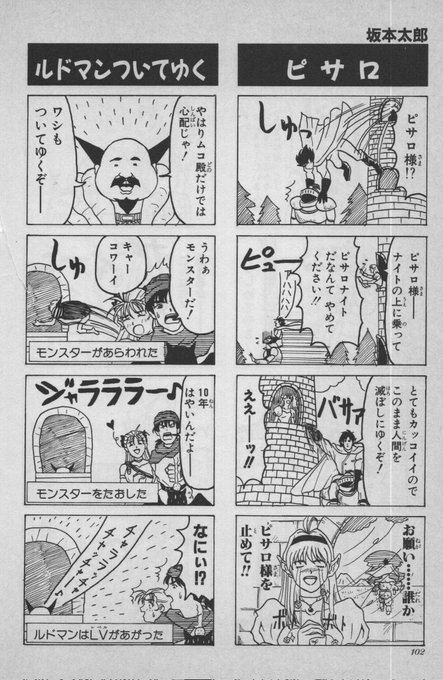 坂本太郎
ピサロ
ピサロ様!?
しゅっ
ピサロ様──
ナイトの上に乗って
ピサロナイト
だなんて やめて
ください!!
ピュー
アハハハハ
とてもカッコイイので
このまま人間を
滅ぼしにゆくぞ!
バサァ
ええ──ッ!!
お願い……誰か
ピサロ様を
止めて!!
ボト
ボト
ルドマンついてゆく
やはりムコ殿だけでは
心配じゃ!
ワシも
ついてゆくぞ──
うわぁ
モンスターだ!
キャー
コワーイ
しゅ
モンスターがあらわれた
ジャラララー♪
10年
はやいんだよ──
モンスターをたおした
なにぃ!?
チャッチャッチャッチャラーン
ルドマンはLVがあがった
102